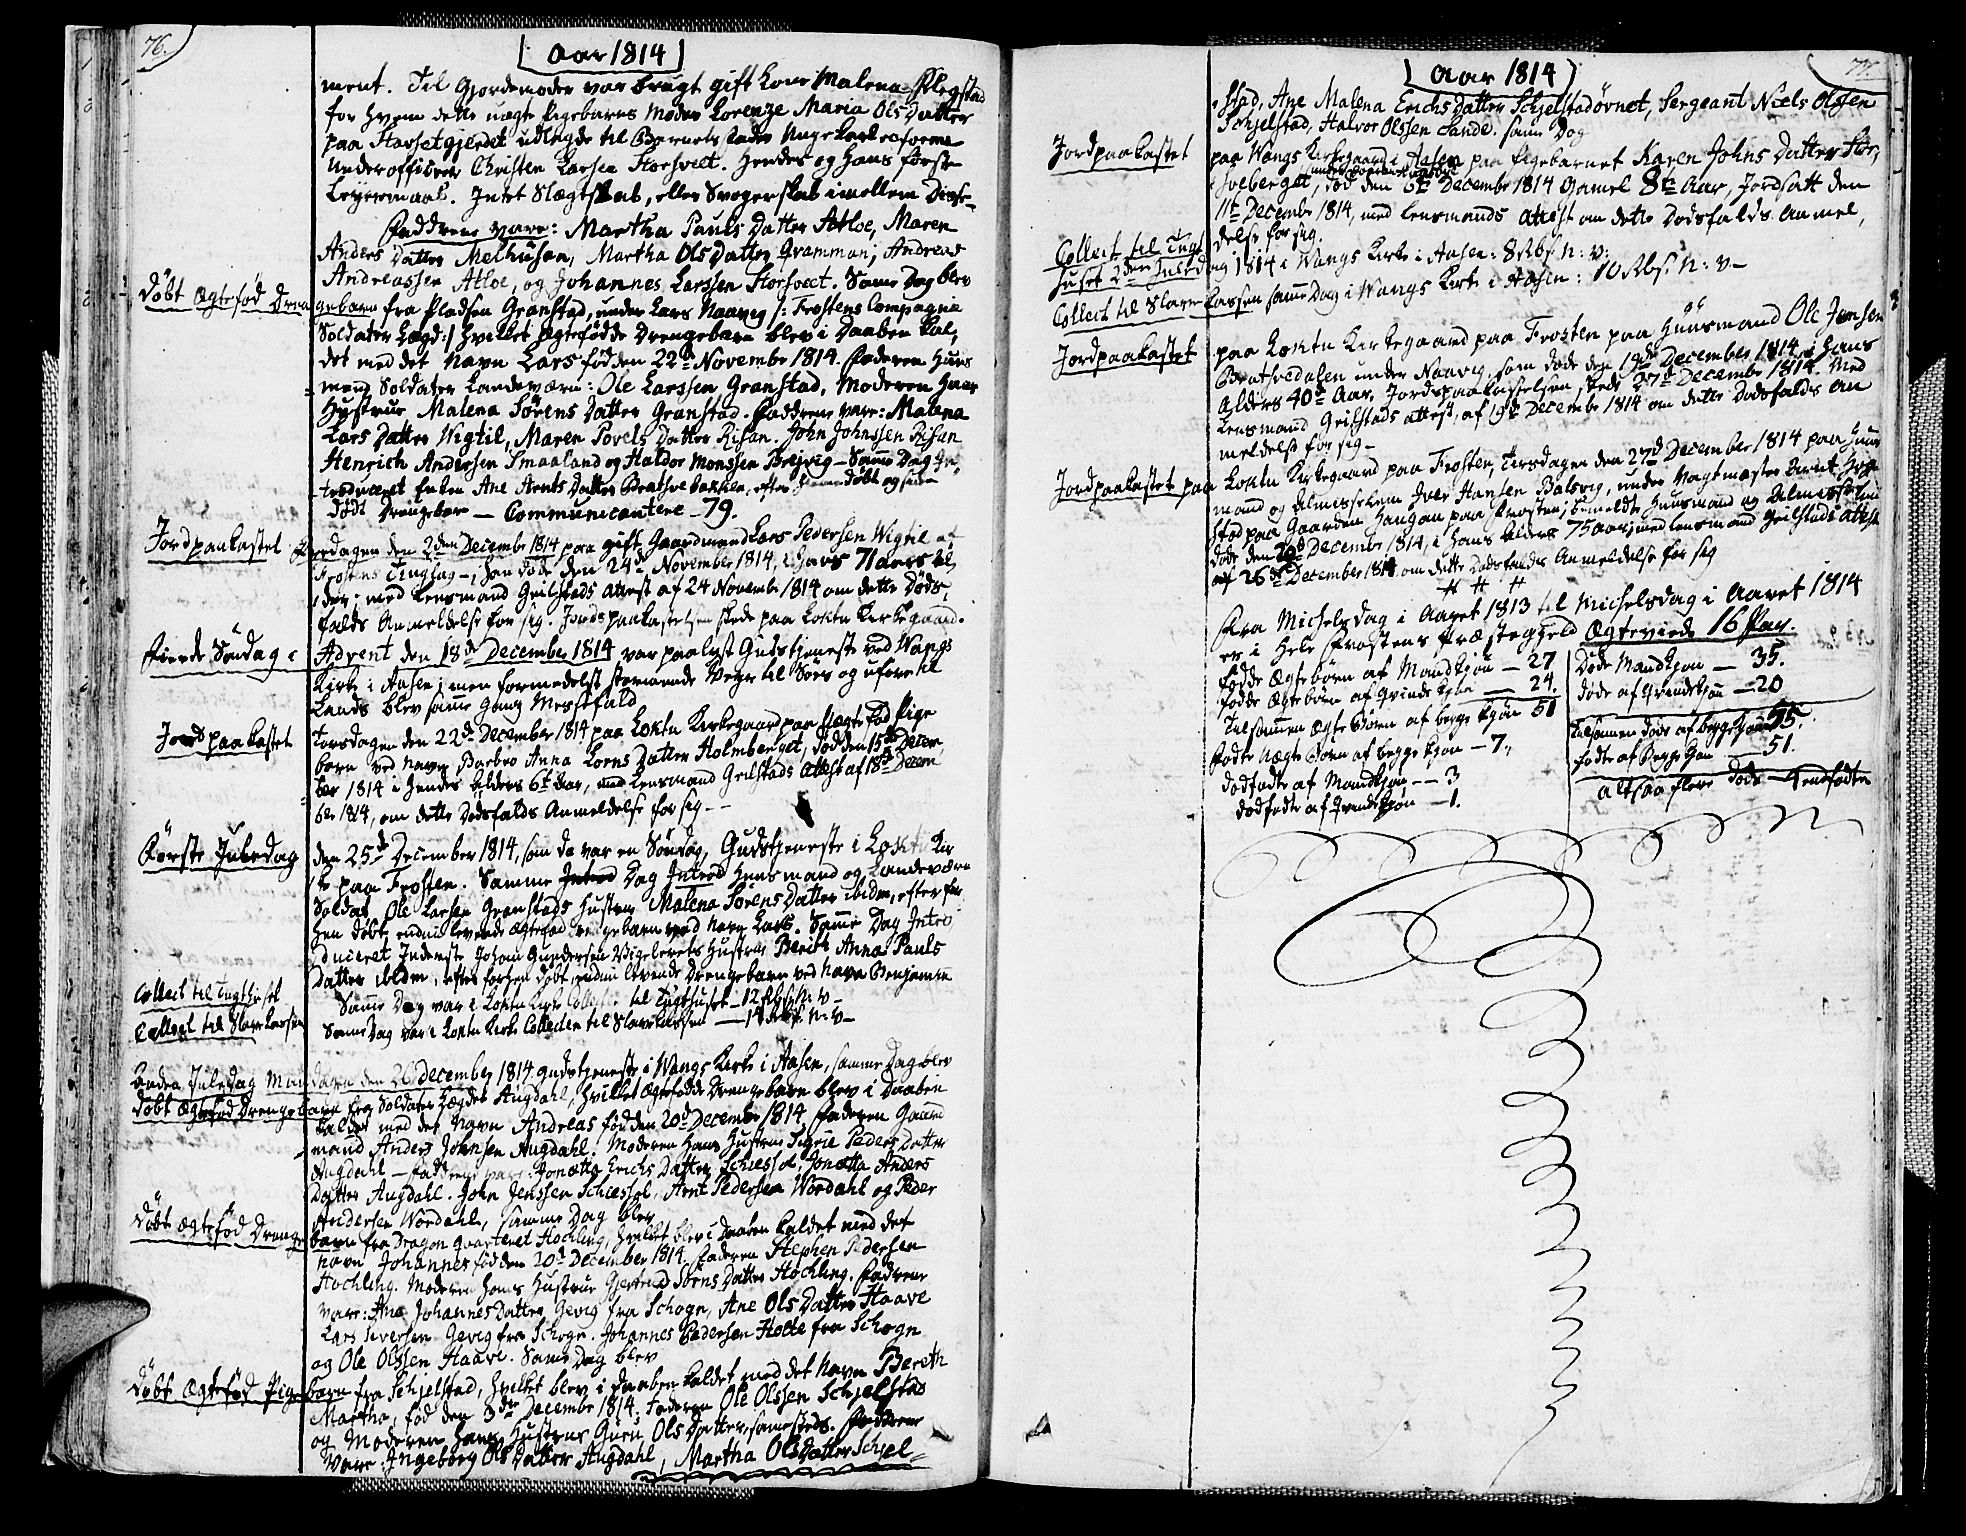 76.
Aar 1814
ment. Til Gjordemoder var brugt gift Kone Malena Flegstad
for hvem dette uægte Pigebarns Moder Lorenze Maria Ols Datter
paa Havsetgjerdet udlagde til Barnets Fader Ungekarl
Underofficer Christen Larsen Storsveet. Hendes og hans første
Leyermaal. Intet Slægtskab, eller Svogerskab imellem Disse.
Faddrene vare: Martha Pauls Datter Atloe, Maren
Anders Datter Melhusen, Martha Ols Datter Gramman, Andreas
Andreassen Atloe, og Johannes Larssen Storsveet. Same Dag blev
Døbt Ægtefød Dren
gebarn fra Pladsen Granstad, under Lars Naavig /: Frostens Compagnie
Soldater Lægd:/ hvilket Ægtefødde Drengebarn blev i Daaben kal,
det med det Navn Lars fød den 22de November 1814. Faderen Huus
mand Soldater Landeværn: Ole Larssen Granstad, Moderen Hans
Hustrue Malena Sørens Datter Granstad. Faddrene vare: Malena
Lars Datter Wigtil, Maren Povels Datter Risan. John Johnssen Risan
Henrich Andersen Smaaland og Haldor Monssen Breivig - Same Dag In,
troduceret Enken Ane Arnts Datter Brathsvebakken, efter hiemedøbt og siden
Dødt Drengebarn — Communicantere - 79.
Jordpaakastet
Fredagen den 2den December 1814 paa gift Gaardmand Lars Pedersen Wigtil af
Frostens Tinglag -, han døde den 24de November 1814, i hans 71 Aars Al,
der - med Lensmand Grilstads Attest af 24 November 1814 om dette Døds,
falds Anmeldelse for sig. Jordpaakastelsen skede paa Loktu Kirkegaard.
Fierde Søndag i
Advent den 18de December 1814 var paalyst Gudstjeneste ved Wangs
Kirke i Aasen, men formedelst stormende Veyr til Søes og uføre til
Lands blev samme gang Messefald
Jordpaakastet
Torsdagen den 22de December 1814 paa Loktu Kirkegaard paa Uægtefød Pige
barn ved navn Barbro Anna Lorns Datter Holmberget, død den 15de Decem
ber 1814 i hendes Alders 6te Aar, med Lensmand Grilstads Attest af 18de Decem
ber 1814, om dette Dødsfalds Anmeldelse for sig -
Første Juledag
den 25de December 1814, som da var en Søndag, Gudstjeneste i Loktu Kir
ke paa Frosten. Samme Dag Introd Huusmand og Landeværn
Soldat Ole Larsen Granstads Hustrue Malena Sørens Datter ibidm, efter for
hen døbt, endnu levende Ægtefød Drengebarn ved Navn Lars. Samme Dag Intro
duceret Inderste Johan Gundersen Vigeleirets Hustrue Bereth Anna Pauls
Datter ibidm, efter forhen døbt, endnu levende Drengebarn ved Navn Benjamin
Collect til Tugthuset
Samme Dag var i Loktu Kirke Collecten til Tugthuset - 12 N: V -
Collect til Slavekassen
Samme Dag var i Loktu Kirke Collecten til Slavekassen — N: V -
Anden Juledag Mandagen den 26 December 1814 Gudstjeneste i Wangs Kirke i Aasen, samme Dag blev
Døbt Ægtefød Drengebarn fra Soldater Lægdet Augdahl, hvilket Ægtefødde Drengebarn blev i Daaben
kaldet med det Navn Andreas fød den 20de December 1814, Faderen Gaard
mand Anders Johnsen Augdahl. Moderen Hans Hustrue Sigrie Peders Datter
Augdahl - Faddrene vare: Jonetta Erichs Datter Schiessel, Jonetta Anders
Datter Augdahl. John Jenssen Schiessel, Arnt Pedersen Wordahl og Peder
Andersen Wordahl, samme Dag blev
Døbt Ægtefød Drenge
barn fra Dragon Quarteret Hochling, hvilket blev i Daaben kaldet med det
navn Johannes fød den 20de December 1814. Faderen Stephen Pedersen
Hochling. Moderen Hans Hustrue Gjertrud Sørns Datter Hochling. Faddrene
vare: Ane Johannes Datter Gevig fra Schogn, Ane Ols Datter Haave
Lars Iversen Gevig fra Schogn. Johannes Pedersen Holte fra Schogn
og Ole Olssen Haave. Same Dag blev
Døbt Ægtefød Pige
barn fra Schjelstad, hvilket blev i Daaben kaldet med det Navn Bereth
Martha, fød den 3die December 1814. Faderen Ole Olssen Schjelstad
og Moderen Hans Hustrue Guru Ols Datter, samesteds. Faddrene
vare Ingeborg Ols Datter Augdahl, Martha Ols Datter Schjel-
77.
Aar 1814
stad, Ane Malena Erichs Datter Schjelstadøvnet, Sergeant Niels Olssen
Schjelstad, Halvor Olssen Sande. samme Dag
Jordpaakastet
paa Wangs Kirkegaard i Aasen paa Pigebarnet Karen Johns Datter Stor,
sveberget, død den 6te December 1814 Gamel 8te Aar, Jordsatt den
11te December 1814, med Lensmands Attest om dette Dødsfalds Anmel,
delse for sig.
Collect til Tugt
huset 2den Juledag 1814 i Wangs Kirke i Aasen: 8 Rbs: N: V:
Collect til Slavekassen samme Dag i Wangs Kirke i Aasen: 10 Rbs: N: V -
Jordpaakastet
paa Loktu Kirkegaard paa Frosten paa Huusmand Ole Jensen
Brathsvedalen under Naavig, som døde den 19de December 1814, i Hans
Alders 40de Aar, Jordpaakastelsen skede 27de December 1814. Med
Lensmand Grilstads Attest, af 19de December 1814 om dette Dødsfalds An
meldelse for sig -
Jordpaakastet paa Loktu Kirkegaard paa Frosten, Tirsdagen den 27de December 1814 paa Huus
mand og Almisselem Iver Hansen Balsvig, under Vagtmæster Arnt
stad paa Gaarden Haugan paa Frosten, bemeldte Huusmand og Almisselem
døde den December 1814, i Hans Alders 75 Aar, med Lensmand Grilstads Attest
af 26de December 1814 om dette Dødsfaldes Anmeldelse for sig
# # #
Fra Michelsdag i Aaret 1813 til Michelsdag i Aaret 1814
er i Hele Frostens Præstegjeld Ægteviede 16 Par.
Fødde Ægtebørn af Mandkjøn — 27
Fødde Ægtebørn af Qvindekjøn — 24.
Tilsammen Ægte Børn af begge kjøn 51
Fødte Uægte Børn af begge Kjøn - 7„
Dødfødte af Mandkjøn -- 3
Dødfødte af Qvindekjøn - 1.
Døde Mandkjøn — 35.
Døde af Qvindekjøn — 20
Tilsamen døde af begge Kjøn 55.
Fødte af Begge Kjøn 51.
Altsaa flere døde - 4 end fødte